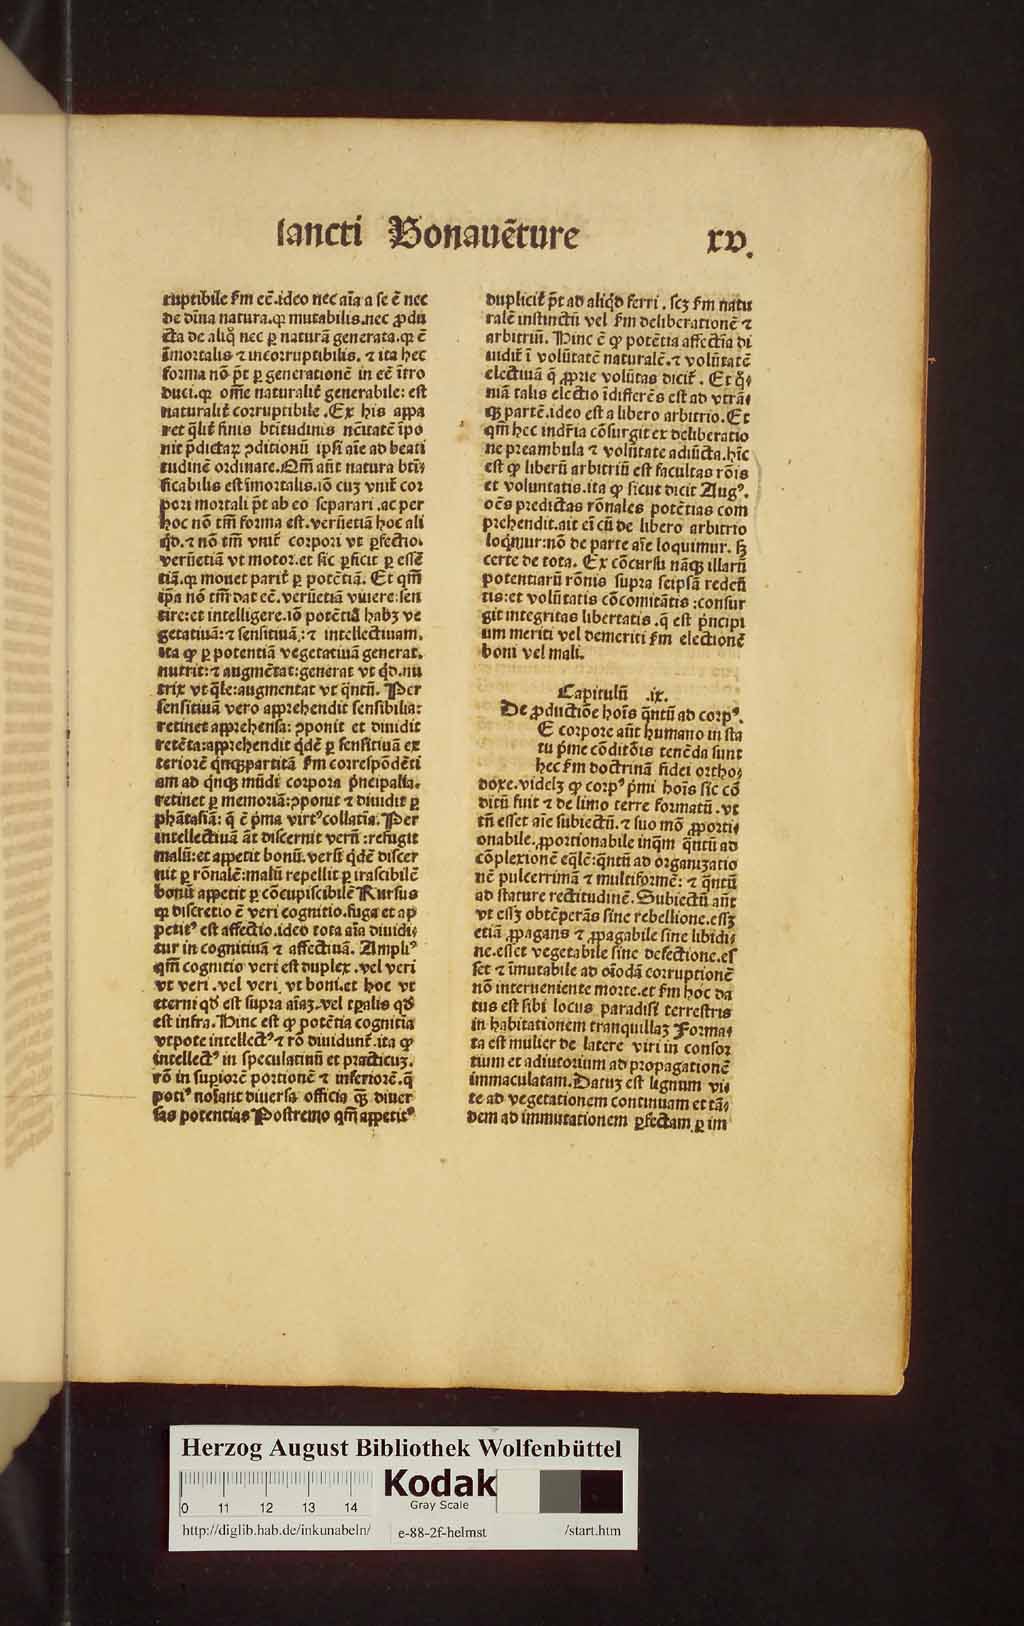 sancti Bonauēture
xv.
ruptibile ẜm eē.ideo nec aīa a se ē nec
de dīna natura.qꝛ mutabilis.nec ꝓdu
cta de aliq̊ nec ꝑ naturā generata.qꝛ ē
īmortalis ⁊ incorruptibilis. ⁊ ita hec
forma nō p̄t ꝑ generationē in eē ītro
duci.qꝛ om̄e naturalit̄ generabile: est
naturalit̄ corruptibile. Ex his appa
ret q̄lit̄ finis btitudinis nēitatē īpo
nit p̄dictaꝝ ꝯditionū ipsi aīe ad beati
tudinē ordinate. Qm̄ aūt natura btī⸗
ficabilis est īmortalis.iō cuz vnit̄ cor
pori mortali p̄t ab eo separari .ac per
hoc nō tm̄ forma est.verūetiā hoc ali
q̄d.⁊ nō tm̄ vnit̄ corpori vt ꝑfectio.
verūetiā vt motor.et sic ꝑficit ꝑ essē
tiā.qꝛ mouet parit̄ ꝑ potētiā. Et qm̄
ip̄a nō tm̄ dat eē.verūetiā viuere:sen
tire:et intelligere.iō potētiā habꝫ ve
getatiuā:⁊ sensitiuā:⁊ intellectiuam.
ita ꝙ ꝑ potentiā vegetatiuā generat.
nutrit:⁊ augmētat:generat vt q̄d.nu
trix vt q̄le:augmentat vt q̄ntū. Per
sensitiuā vero apprehendit sensibilia:
retinet apprehensa: ꝯponit et diuidit
retēta:apprehendit q̄dē ꝑ sensitiuā ex
teriorē q̄nqꝫpartitā ẜm correspōdēti
am ad q̄nqꝫ mūdi corpora p̄ncipalia.
retinet ꝑ memoriā:ꝯponit ⁊ diuidit ꝑ
phātasiā: q̄ ē p̄ma virtꝰ collatīa. Per
intellectiuā āt discernit verū :refugit
malū:et appetit bonū. verū q̄dē discer
nit ꝑ rōnalē:malū repellit ꝑ irascibilē
bonū appetit ꝑ cōcupiscibilē Rursus
qꝛ discretio ē veri cognitio.fuga et ap
petitꝰ est affectio.ideo tota aīa diuidi⸗
tur in cognitiuā ⁊ affectiuā. Ampliꝰ
qm̄ cognitio veri est duplex .vel veri
vt veri .vel veri vt boni.et hoc vt
eterni qd̄ est supra aīaꝫ.vel tꝑalis qd̄
est infra. Hinc est ꝙ potētia cognitia
vtpote intellectꝰ⁊ rō diuidunt̄.ita ꝙ
intellectꝰ in speculatiuū et practicuꝫ.
rō in supiorē portionē ⁊ inferiorē.q̄
potiꝰ noīant diuersa officia q̄ꝫ diuer
sas potentias Postremo qm̄ appetitꝰ
duplicit̄ p̄t ad aliqd̄ ferri .scꝫ ẜm natu
ralē instinctū vel ẜm deliberationē ⁊
arbitriū. Hinc ē ꝙ potētia affectīa di
uidit̄ ī volūtatē naturalē.⁊ volūtatē
electiuā q̄ ꝓprie volūtas dicit̄. Et qº⸗
niā talis electio īdifferēs est ad vtrā⸗
qꝫ partē.ideo est a libero arbitrio. Et
qm̄ hec indr̄ia cōsurgit ex deliberatio
ne preambula ⁊ volūtate adiūcta.hīc
est ꝙ liberū arbitriū est facultas rōis
et voluntatis.ita ꝙ sicut dicit Augꝰ.
oēs predictas rōnales potētias com
prehendit.ait eī cū de libero arbitrio
loq̄mur:nō de parte aīe loquimur. ẜꝫ
certe de tota. Ex cōcursu nāqꝫ illarū
potentiarū rōnis supra seipsā redeū
tis:et volūtatis cōcomitātis :consur
git integritas libertatis .q̄ est p̄ncipi
um meriti vel demeriti ẜm electionē
boni vel mali.
Capitulū .ix.
De ꝓductiōe hoīs q̄ntū ad corpꝰ.
E corpore aūt humano in sta
tu p̄me cōditōis tenēda sunt
hec ẜm doctrinā fidei ortho⸗
doxe.videlꝫ ꝙ corpꝰ p̄mi hoīs sic cō
ditū fuit ⁊ de limo terre formatū .vt
tn̄ esset aīe subiectū.⁊ suo mō ꝓporti⸗
onabile.ꝓportionabile inq̄m q̄ntū ad
cōplexionē eq̄lē:q̄ntū ad organizatio
nē pulcerrimā ⁊ multiformē: ⁊ q̄ntū
ad stature rectitudinē. Subiectū aūt
vt essꝫ obtēperās sine rebellione.essꝫ
etiā ꝓpagans ⁊ ꝓpagabile sine libidi⸗
ne.esset vegetabile sine defectione.es
set ⁊ īmutabile ad oīodā corruptionē
nō interueniente morte.et ẜm hoc da
tus est sibi locus paradisi terrestris
in habitationem tranquillaꝫ Forma⸗
ta est mulier de latere viri in consor
tium et adiutorium ad propagationē
immaculatam. Datuꝫ est lignum vi⸗
te ad vegetationem continuam et tā⸗
dem ad immutationem ꝑfectam ꝑ im
Herzog August Bibliothek Wolfenbüttel
0 11 12 13 14
Kodak
Gray Scale
http://diglib.hab.de/inkunabeln/
e-88-2f-helmst
/start.htm